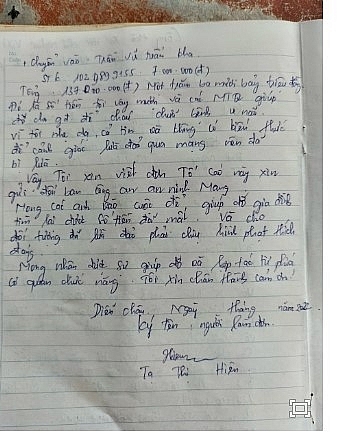 + Chuyển vào Trần vũ tuấn kha.
STK 102 0899155. 7 000.000(đ)
Tổng. 137 000.000 (đ) Một trăm ba mươi bảy triệu đồng
Đó là số tiền tôi vay mượn và các MTQ giúp
đỡ cho gđ để cháu chữa bệnh u não.
vì tôi nhẹ dạ, cả tin và không có kiến thức
để cảnh giác lừa đảo qua mạng nên đã
bị lừa.
Vậy Tôi xin viết đơn Tố Cáo này xin
gửi đến ban Công an an ninh Mạng
Mong các anh vào cuộc để giúp đỡ gia đình
tìm lại được số tiền đã mất. Và cho
đối tượng đã lừa đảo phải chịu hình phạt thích
đáng.
Mong nhận được sự giúp đỡ và hợp tác từ phía
Cơ quan chức năng. Tôi xin chân thành cảm ơn!
Diễn châu, Ngày tháng năm
Ký tên, người làm đơn.
Hiên
Tạ Thị Hiên